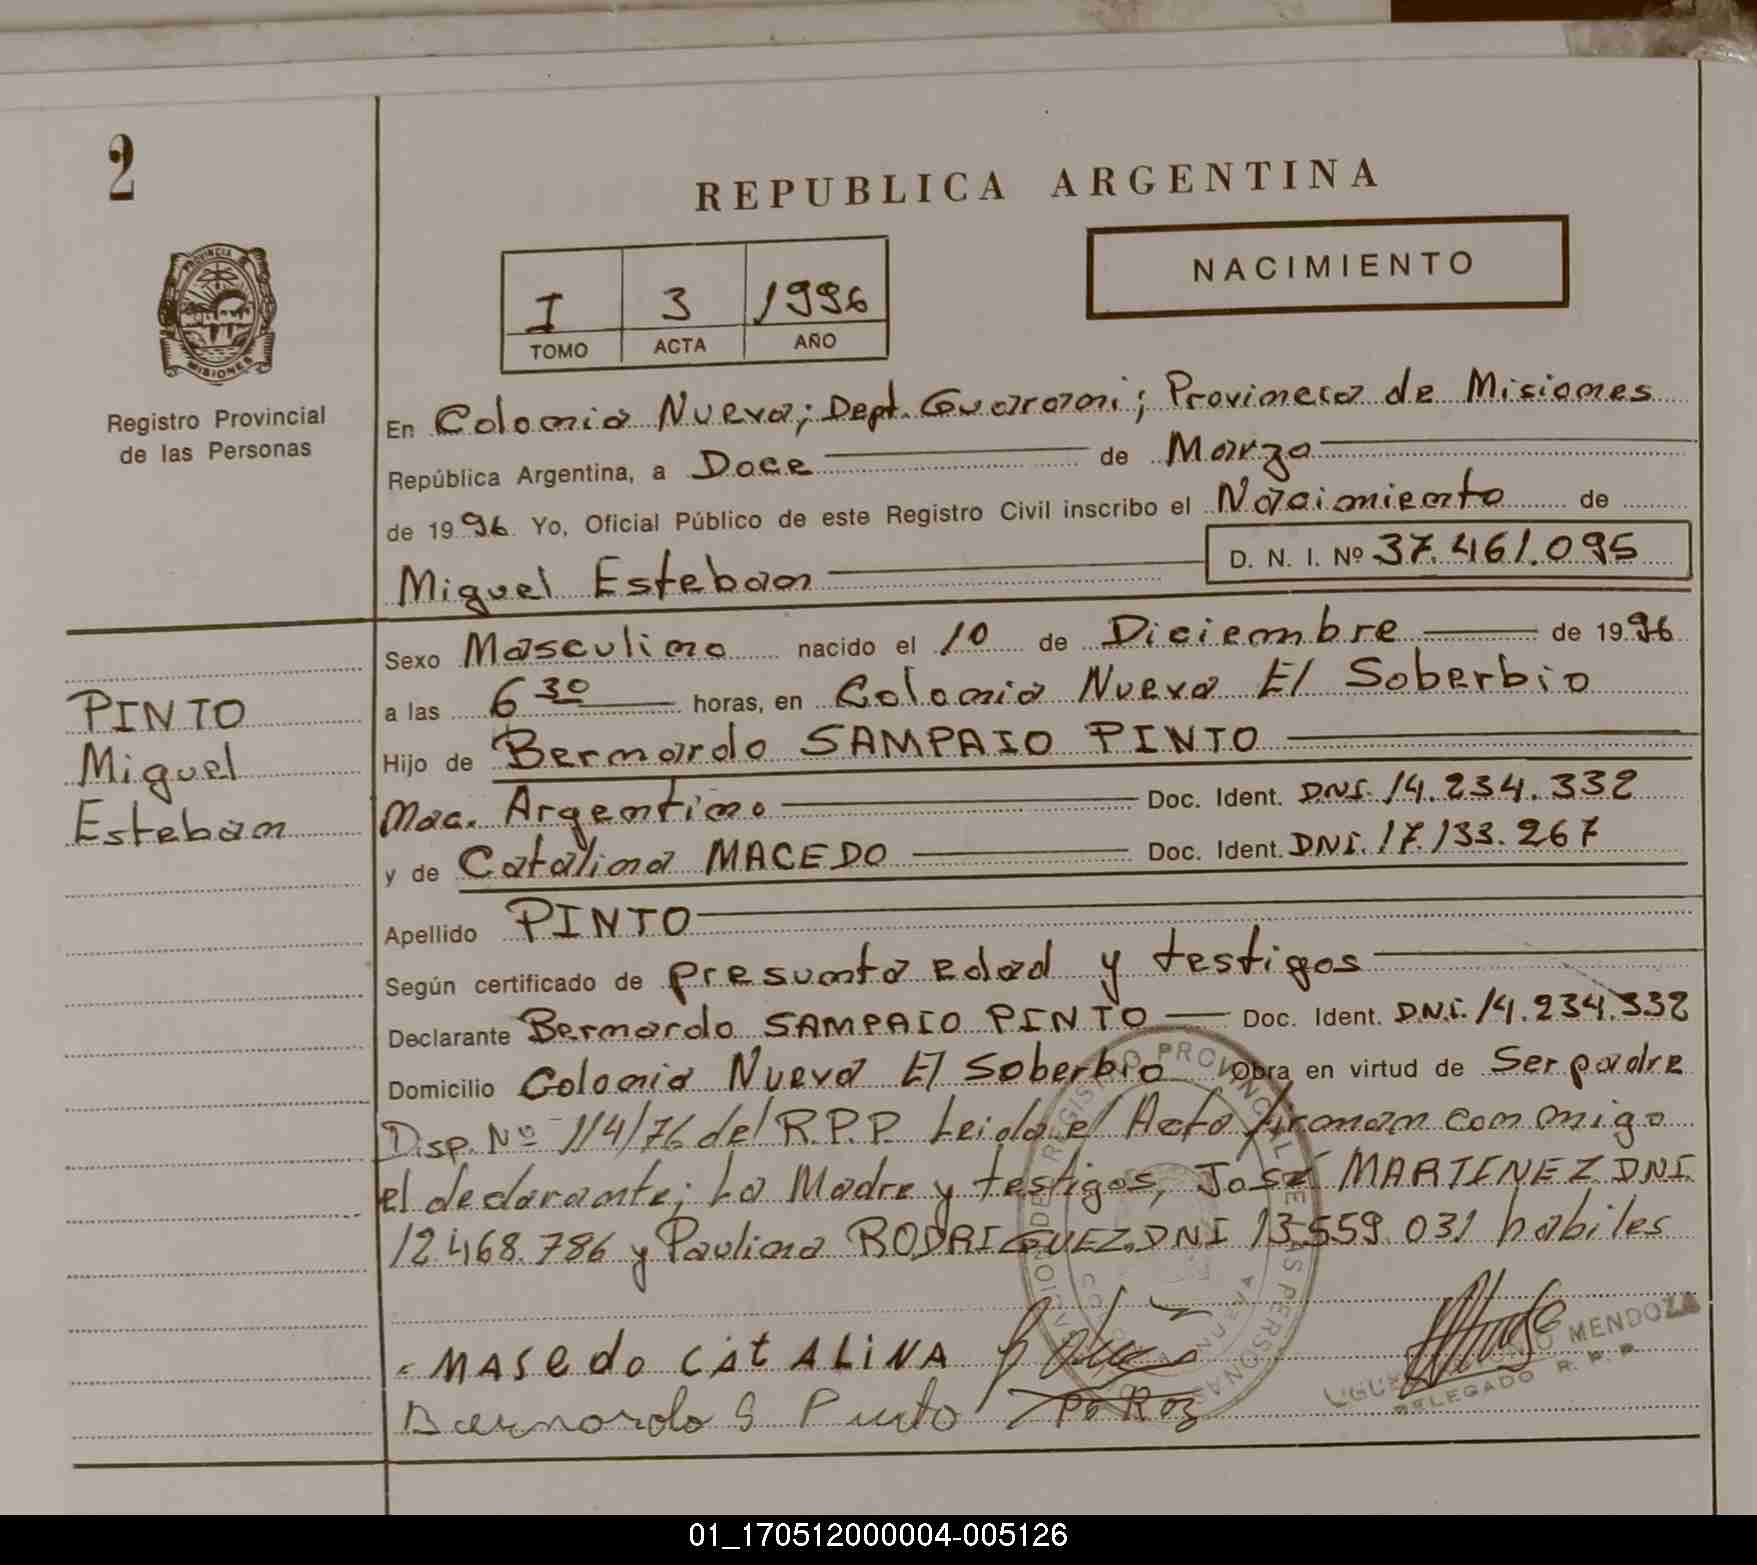 2
REPUBLICA ARGENTINA
PROVINCIA
MISIONES
Registro Provincial
de las Personas
I 3 1996
TOMO ACTA AÑO
NACIMIENTO
En Colonia Nueva; Dept. Guarani; Provincia de Misiones
República Argentina, a Doce de Marzo
de 1996 Yo, Oficial Público de este Registro Civil inscribo el Nacimiento de
Miguel Esteban D. N. I. Nº 37.461.095
Sexo Masculino nacido el 10 de Diciembre de 1996
a las 6 30 horas, en Colonia Nueva El Soberbio
Hijo de Bernardo SAMPAIO PINTO
Nac. Argentino Doc. Ident. DNI. 14.234.332
y de Catalina MACEDO Doc. Ident. DNI. 17.133.267
Apellido PINTO
Según certificado de presunta edad y testigos
Declarante Bernardo SAMPAIO PINTO Doc. Ident. D.N.I. 14.234.332
Domicilio Colonia Nueva El Soberbio Obra en virtud de Ser padre
Disp. Nº 114/76 del R.P.P. Leida el Acta firman conmigo
el declarante; La Madre y testigos, José MARTINEZ DNI
12.468.786 y Paulina RODRIGUEZ DNI 13.559.031 habiles
PINTO
Miguel
Esteban
MASedo CAtALiNA
Bernardo S Pinto
MENDOZA
DELEGADO R. P. P.
01_170512000004-005126